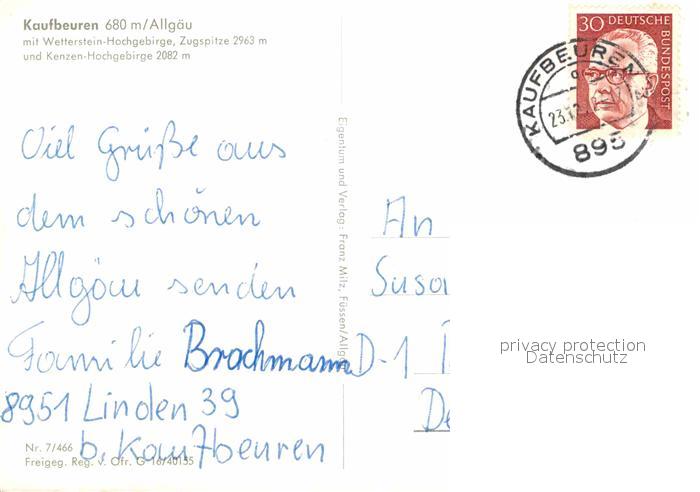 Kaufbeuren 680 m/Allgäu
mit Wetterstein-Hochgebirge, Zugspitze 2963 m
und Kenzen-Hochgebirge 2082 m
30 DEUTSCHE
BUNDESPOST
KAUFBEUREN
23.12.
895
Viel Grüße aus
dem schönen
Allgäu senden
Familie Brachmann
8951 Linden 39
b. Kaufbeuren
Nr. 7/466
Freigeg. Reg. v. Ofr. G 16/40155
Eigentum und Verlag: Franz Milz, Füssen/Allg
An
Susa
D-1
De
privacy protection
Datenschutz